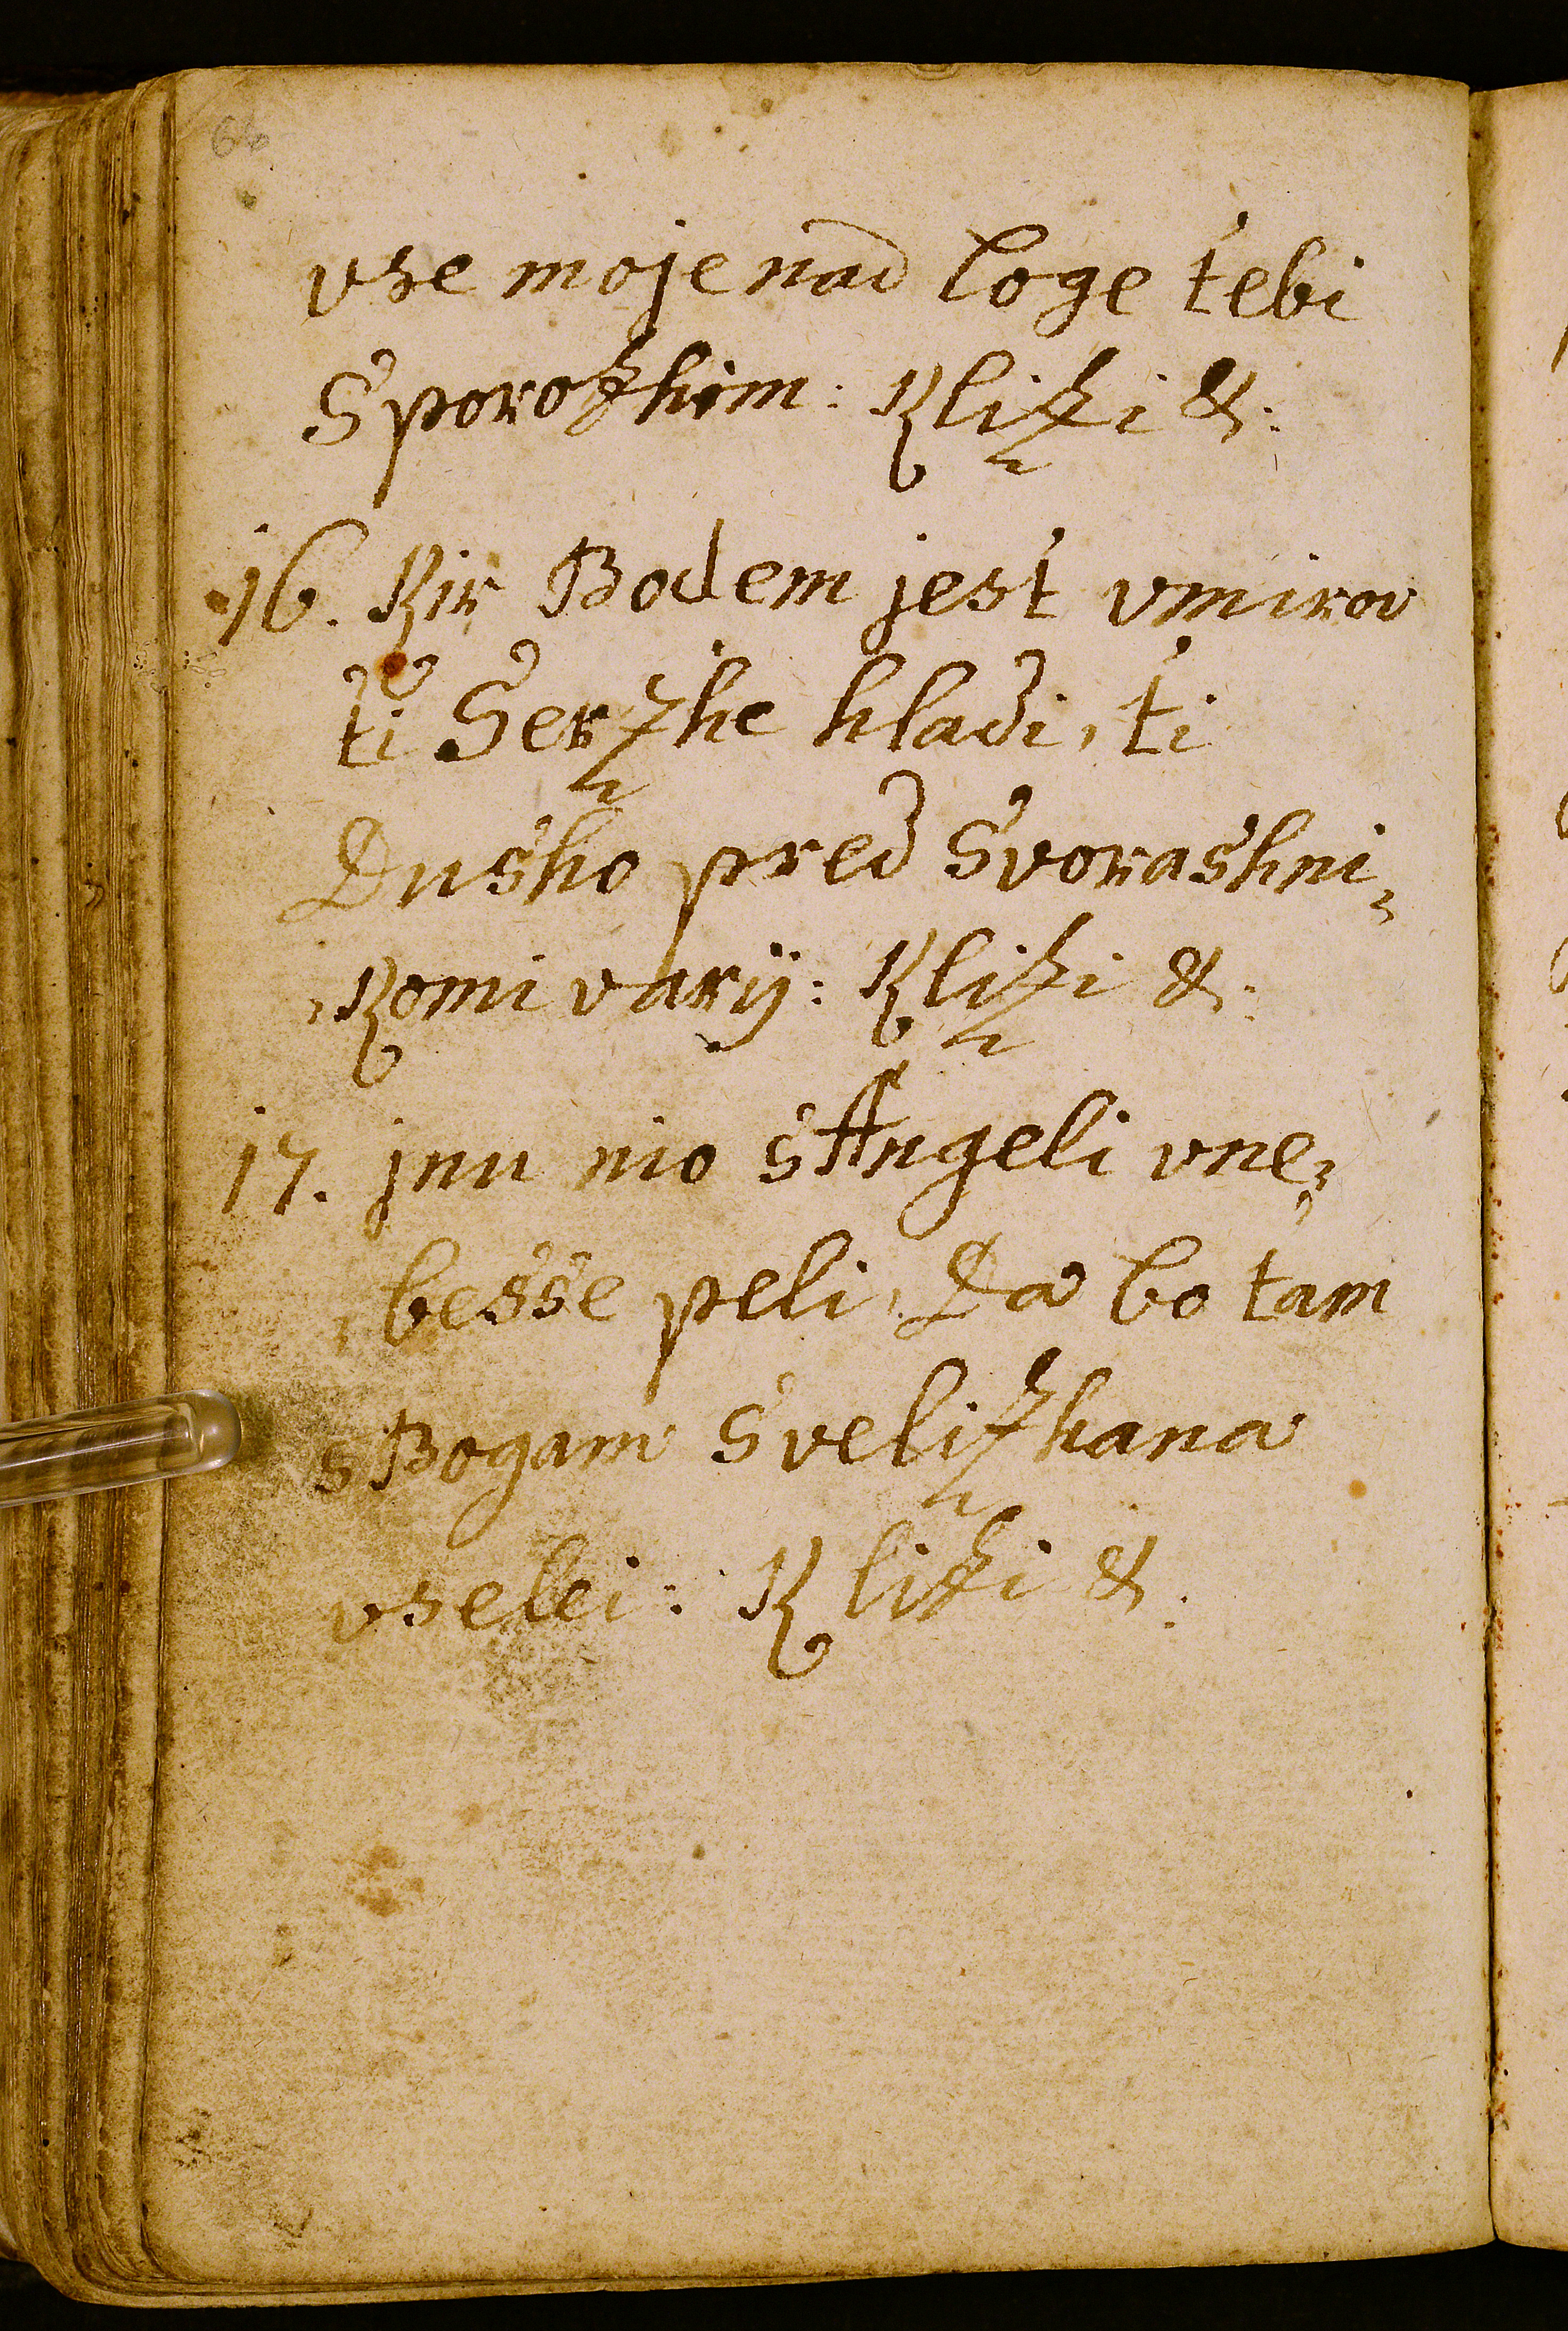 66
vse moje nad loge tebi
Sporozhim: Klizi &:
16. Kir Bodem jest vmirov
ti Serzhe hladi, ti
Dusho pred Svorashni,
,Komi varij: Klizi &:
17. jnu nio sAngeli vne,
,besse peli, Da bo tam
sBogam Svelizhana
vselei: Klizi &: